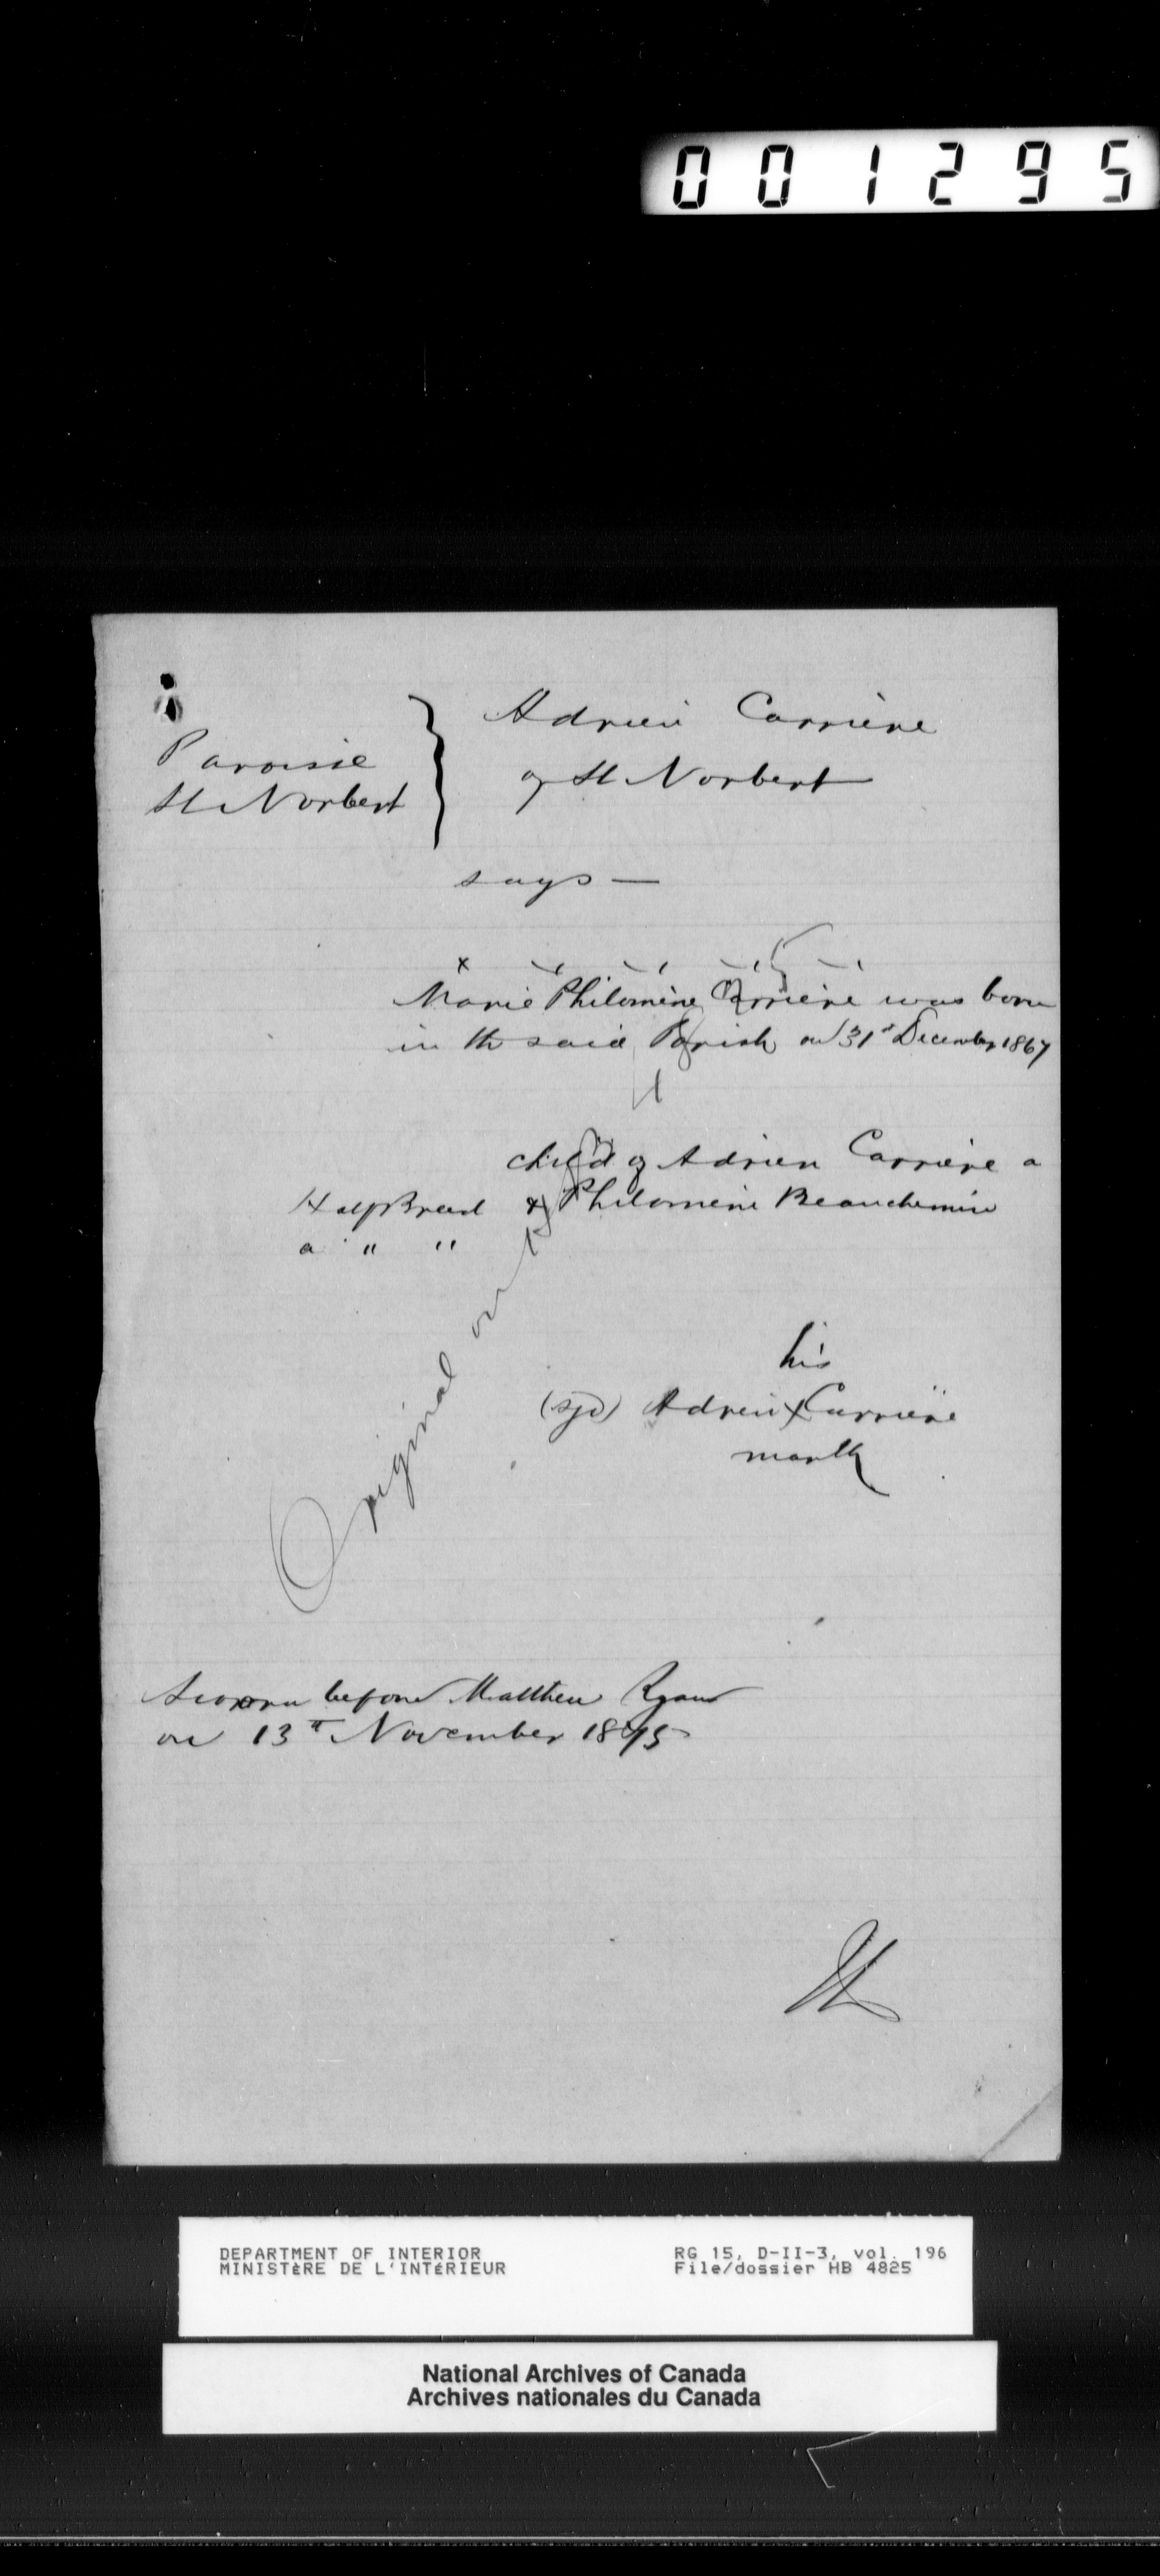 001295
Adrien Carrière
Paroisse
of St Norbert
St Norbert
says —
Marie Philomène Carrière was born
in the said Parish on 31st December 1867
child of Adrien Carrière a
Half Breed & Philomène Beauchemin
a " "
his
(sgd) Adrien X Carrière
mark
Original out
Sworn before Matthew Ryan
on 13th November 1875
DEPARTMENT OF INTERIOR
MINISTÈRE DE L'INTÉRIEUR
RG 15, D-II-3, vol. 196
File/dossier HB 4825
National Archives of Canada
Archives nationales du Canada